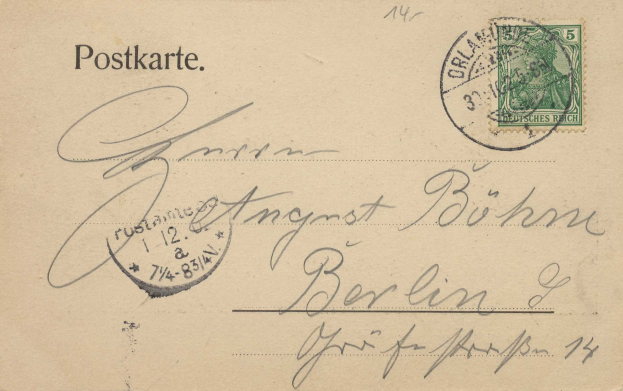 14.-
Postkarte.
ORLAMÜNDE
5
DEUTSCHES REICH
Herrn
August Böhme
Berlin S
Gräfestraße 14
1 12.
a
* 7¼-8¾V. *